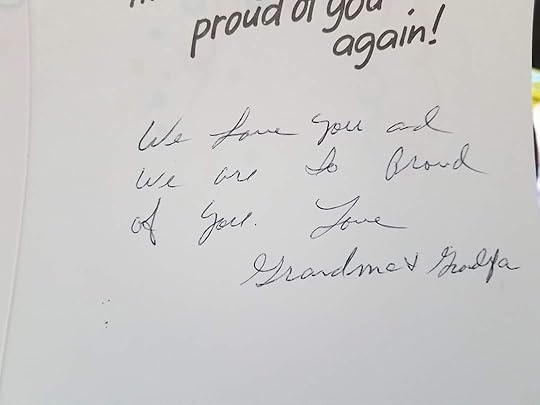 proud of you
again!
We Love You and
We are So Proud
of You. Love
Grandma & Grandpa